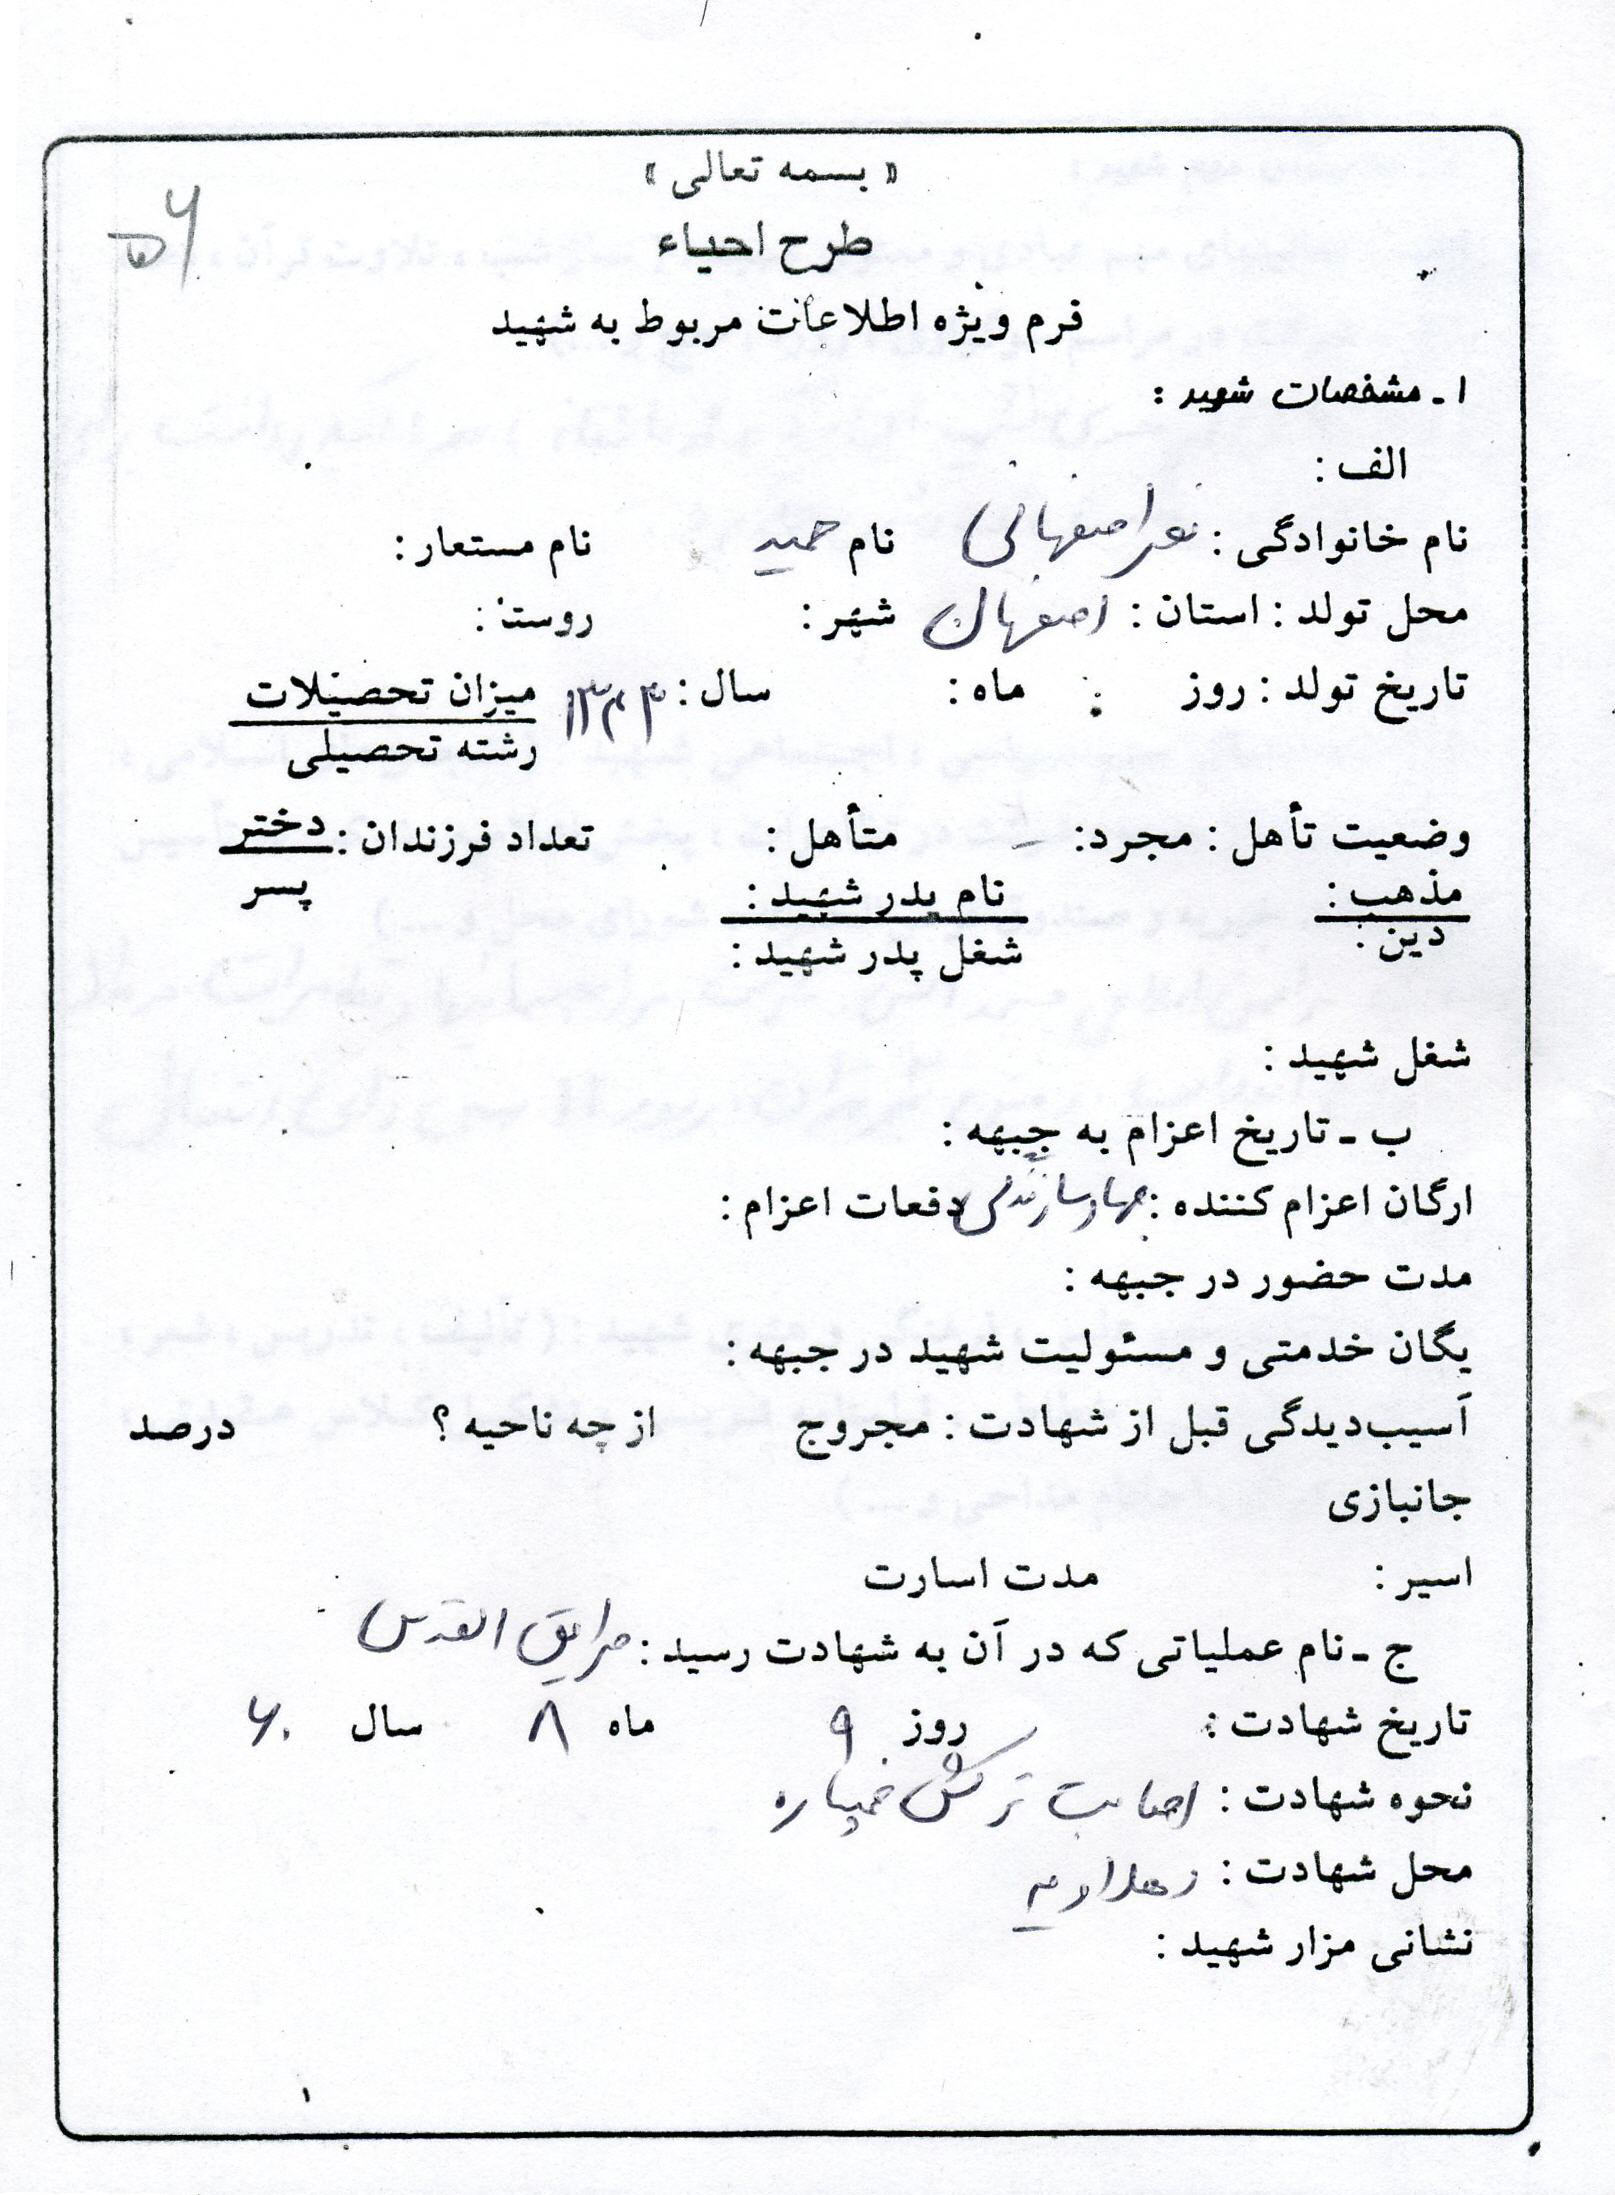 « بسمه تعالی »
طرح احیاء
فرم ویژه اطلاعات مربوط به شهید
۱ ـ مشخصات شهید :
الف :
نام خانوادگی : نصر اصفهانی نام حمید نام مستعار :
محل تولد : استان : اصفهان شهر : روستا :
تاریخ تولد : روز : ماه : سال : ۱۳۴۳ میزان تحصیلات
رشته تحصیلی
وضعیت تأهل : مجرد: متأهل : تعداد فرزندان : دختر
پسر
مذهب : نام پدر شهید :
دین : شغل پدر شهید :
شغل شهید :
ب ـ تاریخ اعزام به جبهه :
ارگان اعزام کننده : جهاد سازندگی دفعات اعزام :
مدت حضور در جبهه :
یگان خدمتی و مسئولیت شهید در جبهه :
آسیب‌دیدگی قبل از شهادت : مجروح از چه ناحیه ؟ درصد
جانبازی
اسیر : مدت اسارت
ج ـ نام عملیاتی که در آن به شهادت رسید : طریق القدس
تاریخ شهادت : روز ۹ ماه ۸ سال ۶۰
نحوه شهادت : اصابت ترکش خمپاره
محل شهادت :
نشانی مزار شهید :
۱